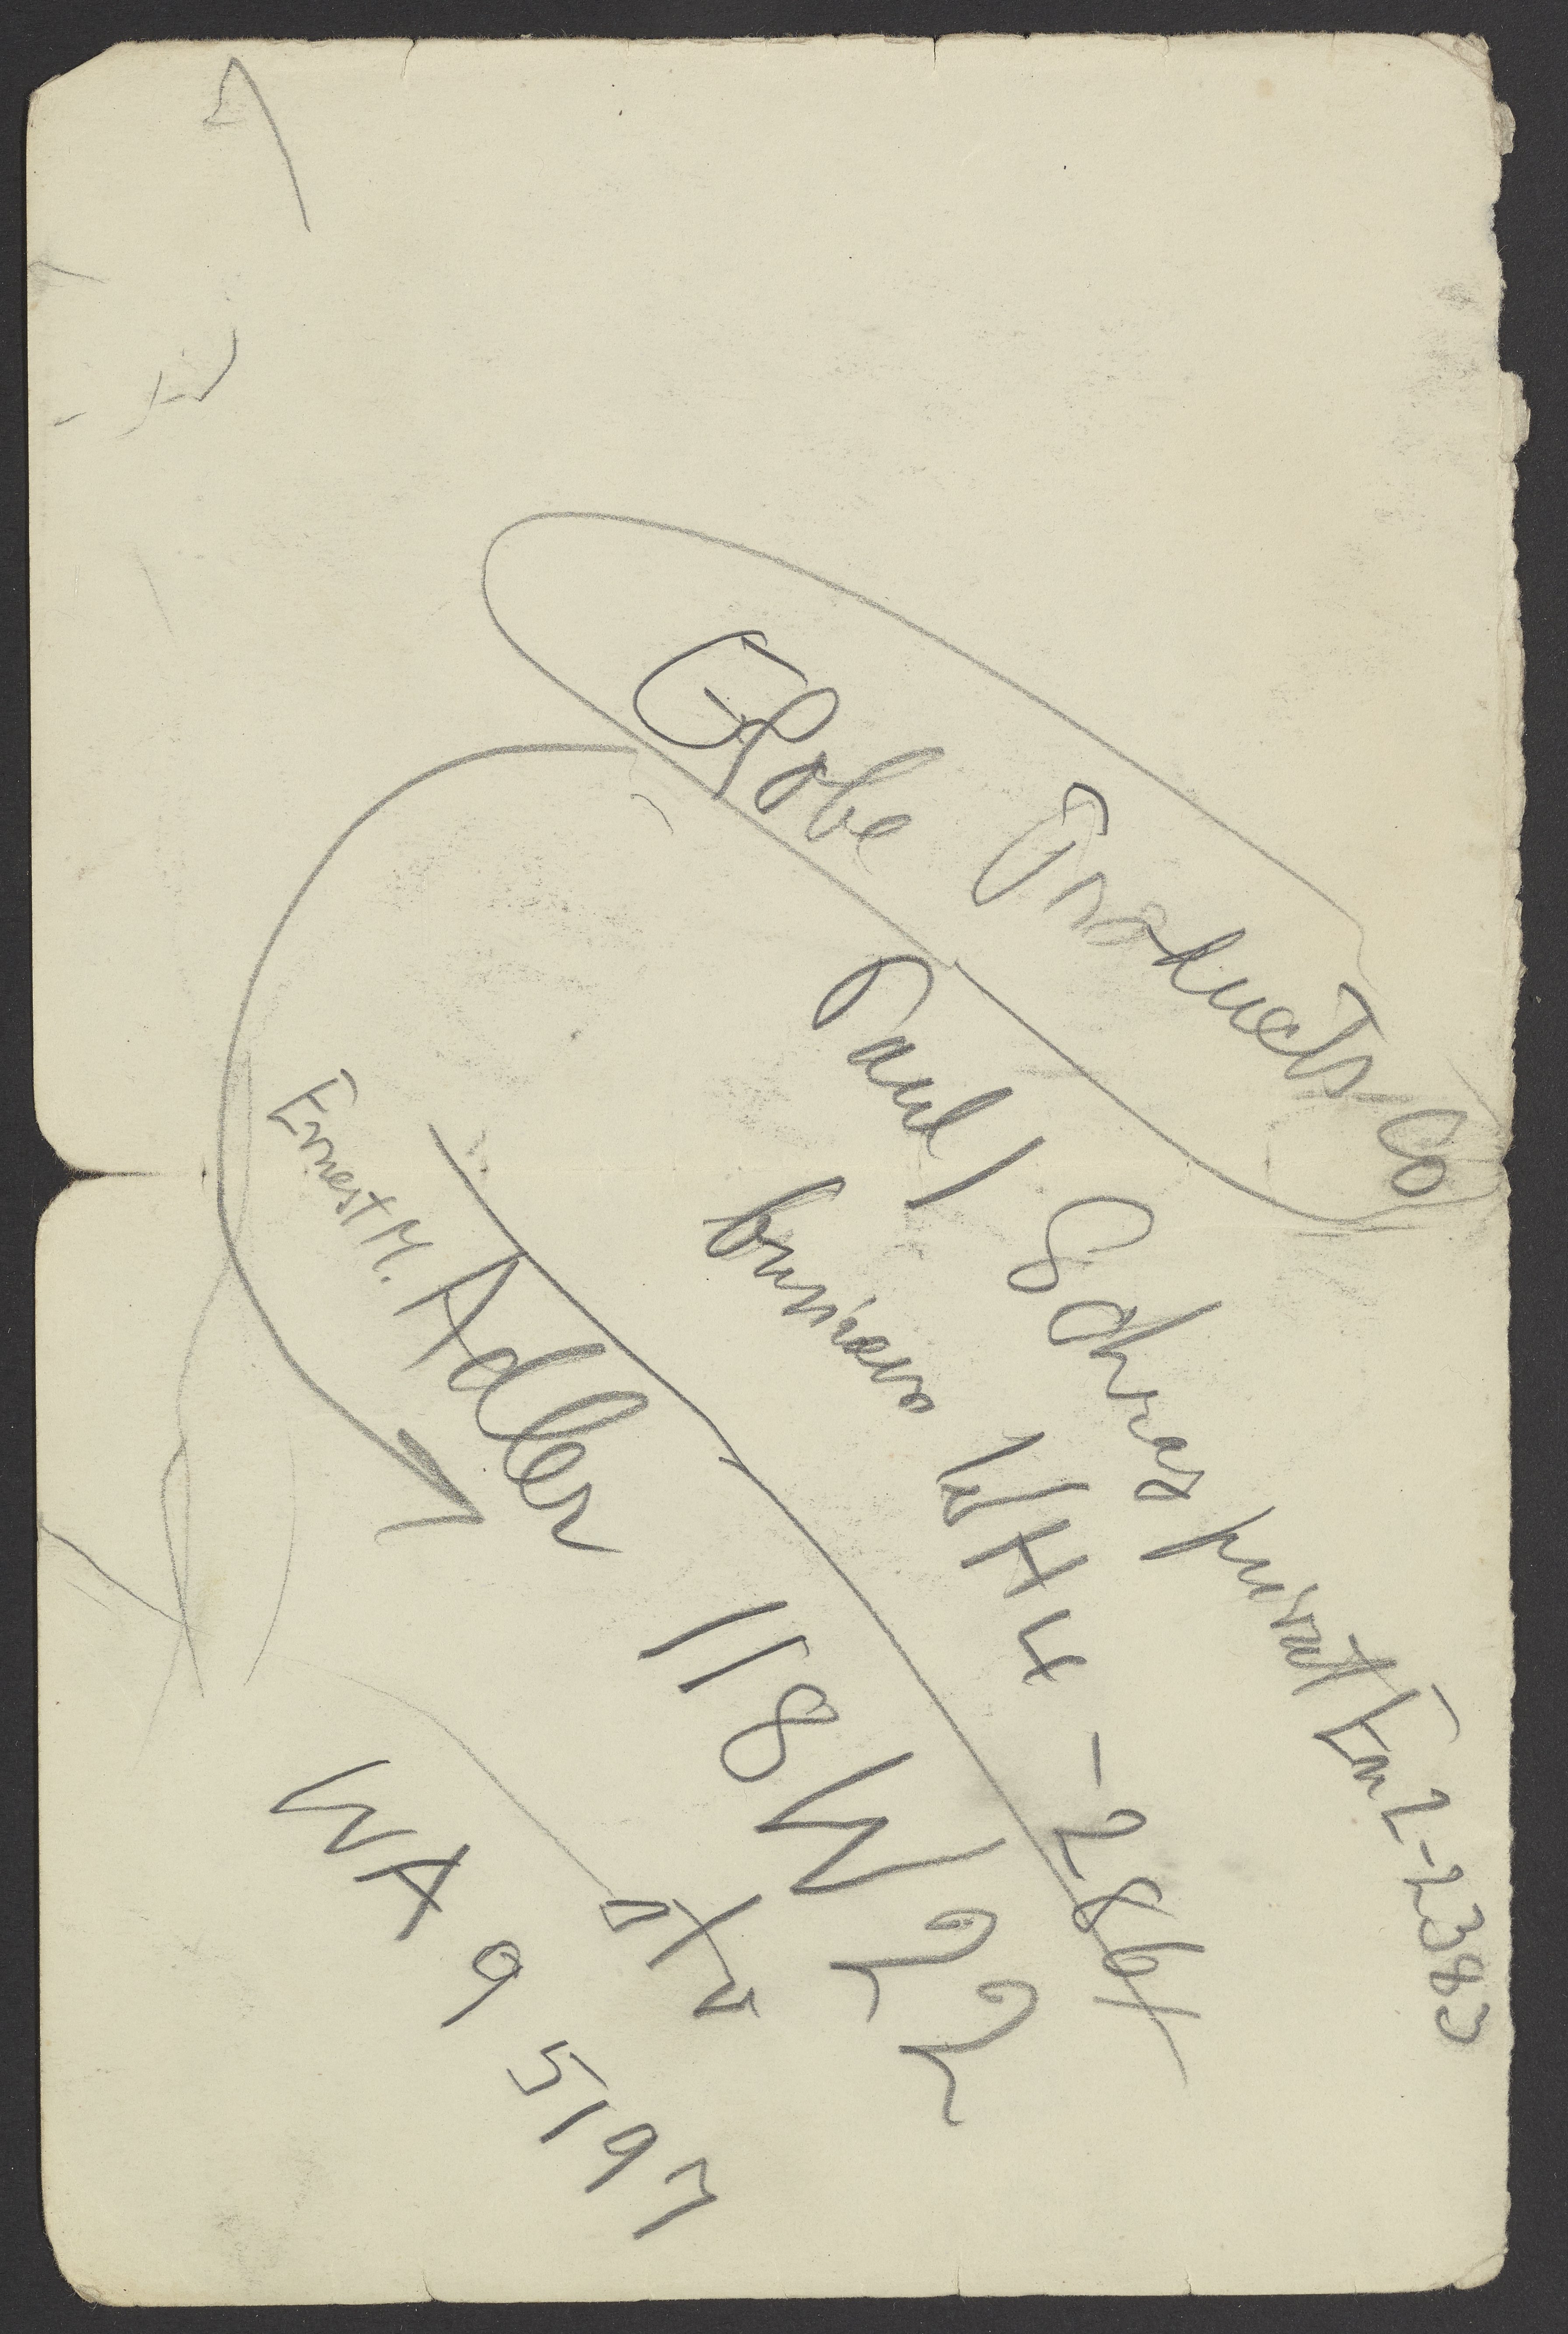 Globe Products Co
Paul Schrag privat En 2-2383
business WH 4-2867
Ernest M. Adler 118 W 22
WA 9 5197